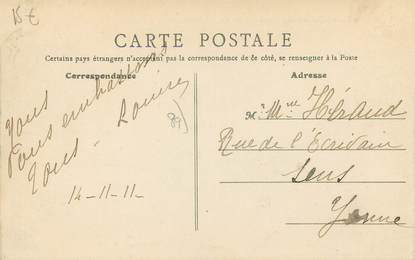 15€
CARTE POSTALE
Certains pays étrangers n'acceptant pas la correspondance de ce côté, se renseigner à la Poste
Correspondance
Adresse
Vous
Vous embrassons
Tous - Louise
14-11-11-
89
M. Mme Héraud
Rue de l'Ecrivain
Sens
Yonne